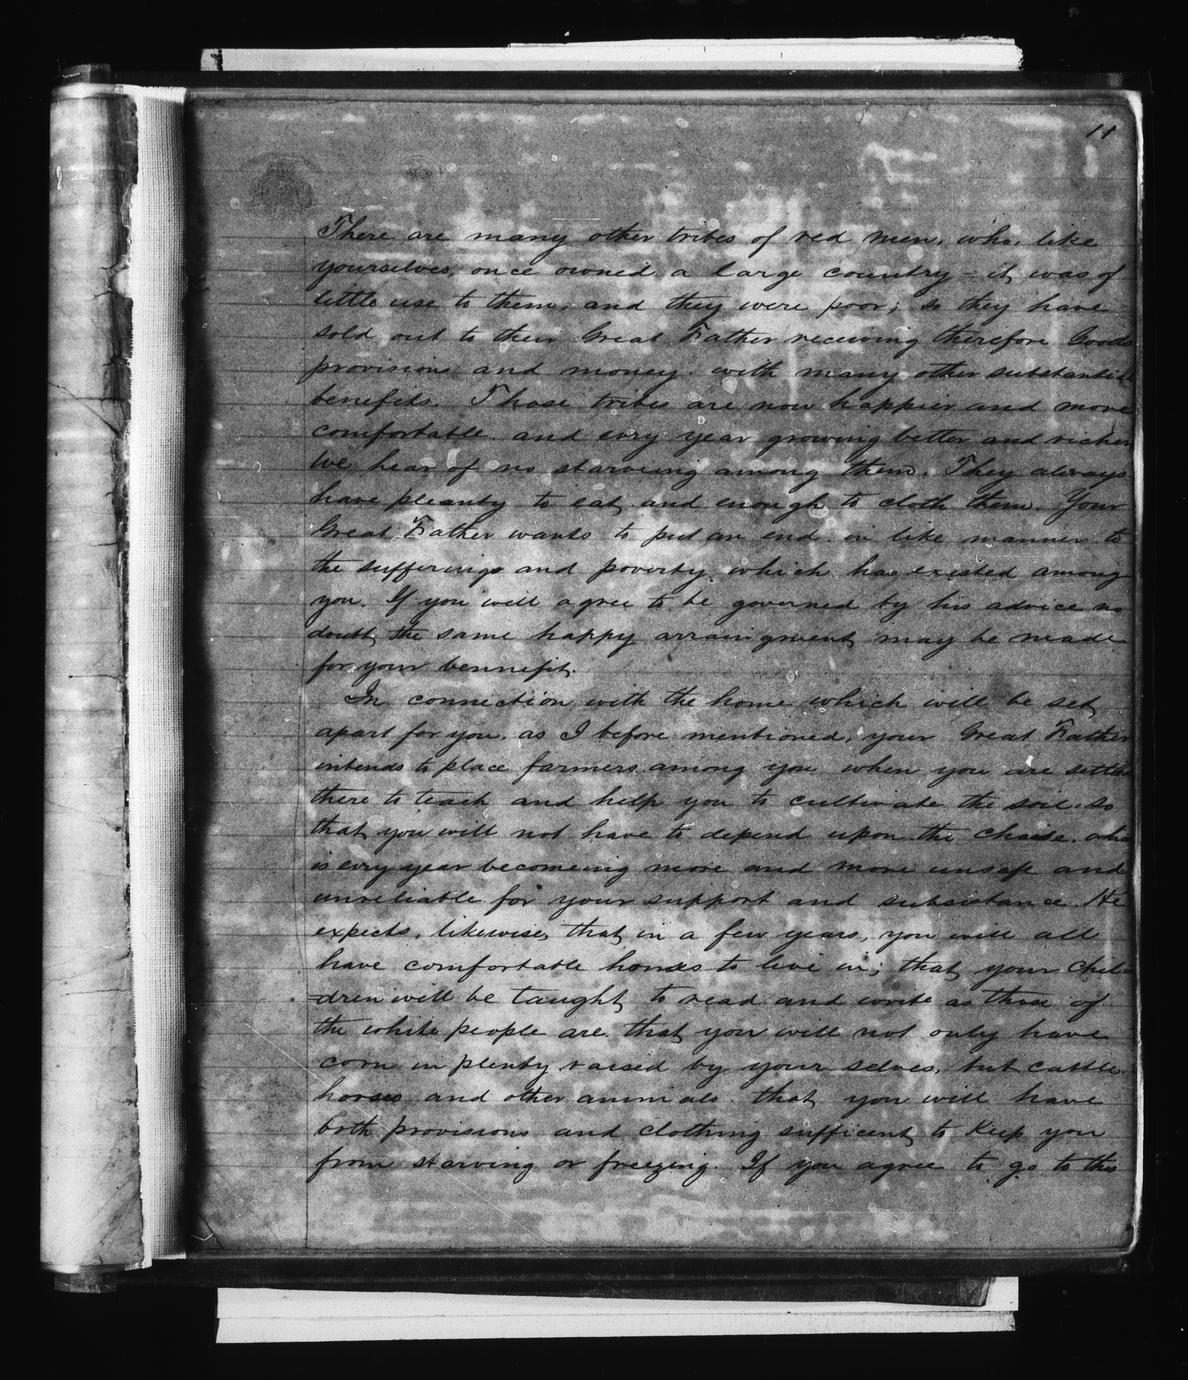 11
There are many other tribes of red men, who, like
yourselves, once owned a large country - it was of
little use to them, and they were poor; so they have
sold out to their Great Father receiving therefore Goods
provisions and money. with many other substantial
benefits. Those tribes are now happier and more
comfortable. and evry year growing better and richer
We hear of no starveing among them. They always
have pleanty to eat and enough to cloth them. Your
Great Father wants to put an end in like manner to
the sufferings and poverty which has existed among
you. If you will agree to be governed by his advice no
doubt, the same happy arraingment may be made
for your bennefit.
In connection with the home which will be set
apart for you, as I before mentioned, your Great Father
intends to place farmers among you when you are settled
there to teach and help you to cultivate the soil. so
that you will not have to depend upon the chase.
is evry year becomeing more and more unsafe and
unreliable for your support and subsistance. He
expects, likewise, that in a few years, you will all
have comfortable homes to live in; that your Chil-
-dren will be taught to read and write as those of
the white people are. that you will not only have
corn in plenty raised by your selves, but cattle.
horses and other animals. that you will have
both provisions and clothing sufficent to keep you
from starving or freezing. If you agree to go to this